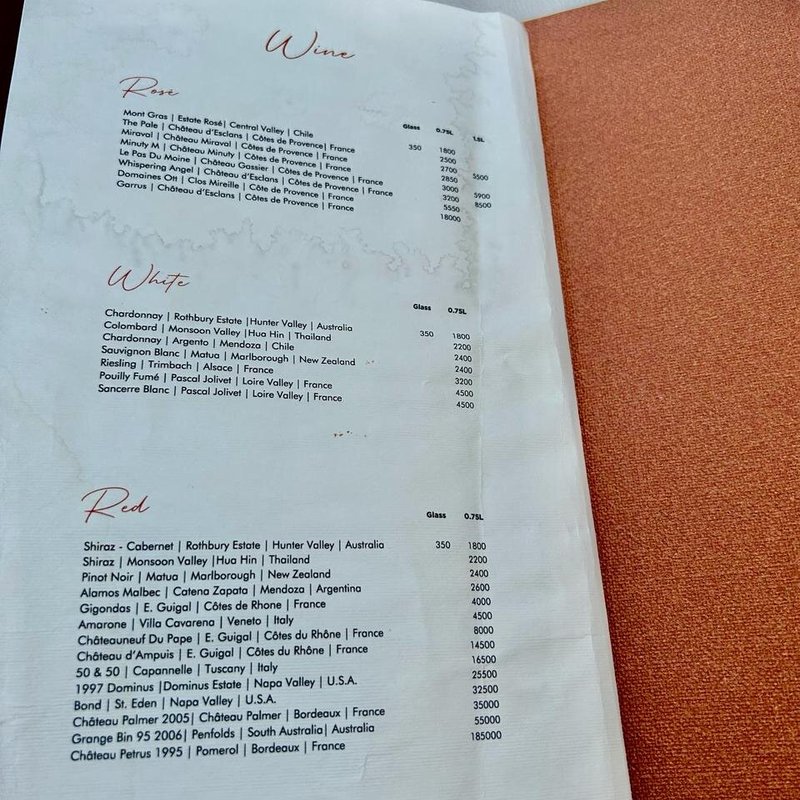 Wine
Rosé
Glass 0.75L 1.5L
Mont Gras | Estate Rosé| Central Valley | Chile 350 1800
The Pale | Château d'Esclans | Côtes de Provence| France 2500
Miraval | Château Miraval | Côtes de Provence | France 2700 5500
Minuty M | Château Minuty | Côtes de Provence | France 2850
Le Pas Du Moine | Château Gassier | Côtes de Provence | France 3000 5900
Whispering Angel | Château d'Esclans | Côtes de Provence | France 3200 8500
Domaines Ott | Clos Mireille | Côte de Provence | France 5550
Garrus | Château d'Esclans | Côtes de Provence | France 18000
White
Glass 0.75L
Chardonnay | Rothbury Estate |Hunter Valley | Australia 350 1800
Colombard | Monsoon Valley |Hua Hin | Thailand 2200
Chardonnay | Argento | Mendoza | Chile 2400
Sauvignon Blanc | Matua | Marlborough | New Zealand 2400
Riesling | Trimbach | Alsace | France 3200
Pouilly Fumé | Pascal Jolivet | Loire Valley | France 4500
Sancerre Blanc | Pascal Jolivet | Loire Valley | France 4500
Red
Glass 0.75L
Shiraz - Cabernet | Rothbury Estate | Hunter Valley | Australia 350 1800
Shiraz | Monsoon Valley |Hua Hin | Thailand 2200
Pinot Noir | Matua | Marlborough | New Zealand 2400
Alamos Malbec | Catena Zapata | Mendoza | Argentina 2600
Gigondas | E. Guigal | Côtes de Rhone | France 4000
Amarone | Villa Cavarena | Veneto | Italy 4500
Châteauneuf Du Pape | E. Guigal | Côtes du Rhône | France 8000
Château d'Ampuis | E. Guigal | Côtes du Rhône | France 14500
50 & 50 | Capannelle | Tuscany | Italy 16500
1997 Dominus |Dominus Estate | Napa Valley | U.S.A. 25500
Bond | St. Eden | Napa Valley | U.S.A. 32500
Château Palmer 2005| Château Palmer | Bordeaux | France 35000
Grange Bin 95 2006| Penfolds | South Australia| Australia 55000
Château Petrus 1995 | Pomerol | Bordeaux | France 185000